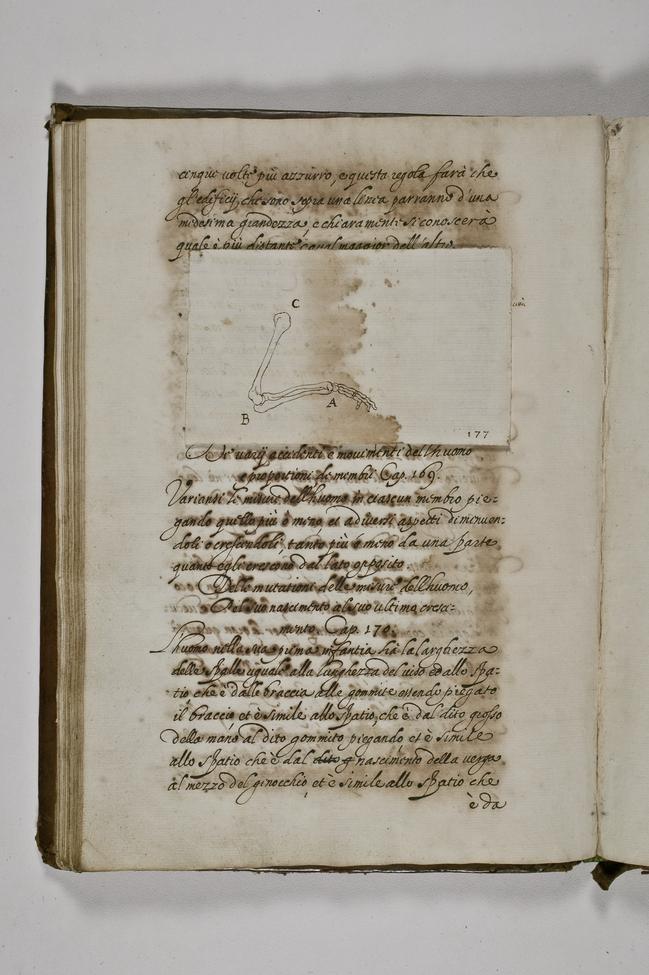 cinque volte più azzurro, e questa regola farà che
gl'edificij, che sono sopra una linea parranno d'una
medesima grandezza, e chiaramente si conoscerà
quale è più distante e qual maggior dell'altro.
C
B
A
177
De varij accidenti e movimenti dell'huomo
e proportioni de membri Cap. 169.
Variansi le misure dell'huomo in ciascun membro pie-
gando quello più o meno et a diversi aspetti diminuen:
doli o crescendoli tanto più o meno da una parte
quanto egli crescono dal lato opposito.
Delle mutationi delle misure dell'huomo,
Del suo nascimento al suo ultimo cresci:
mento. Cap. 170.
L'huomo nella sua prima infantia hà la larghezza
delle spalle uguale alla lunghezza del viso ed allo spa:
tio che è dalle braccia alle gommite essendo piegato
il braccio et è simile allo spatio, che è dal dito grosso
della mano al dito gommito piegando et è simile
allo spatio che è dal dito nascimento della verga
al mezzo del ginocchio et è simile allo spatio che
è da